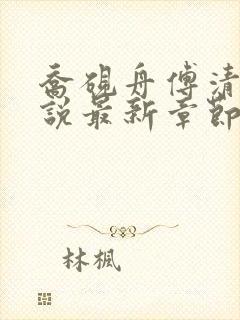 喬硯舟傅清
說最新章節
林楓